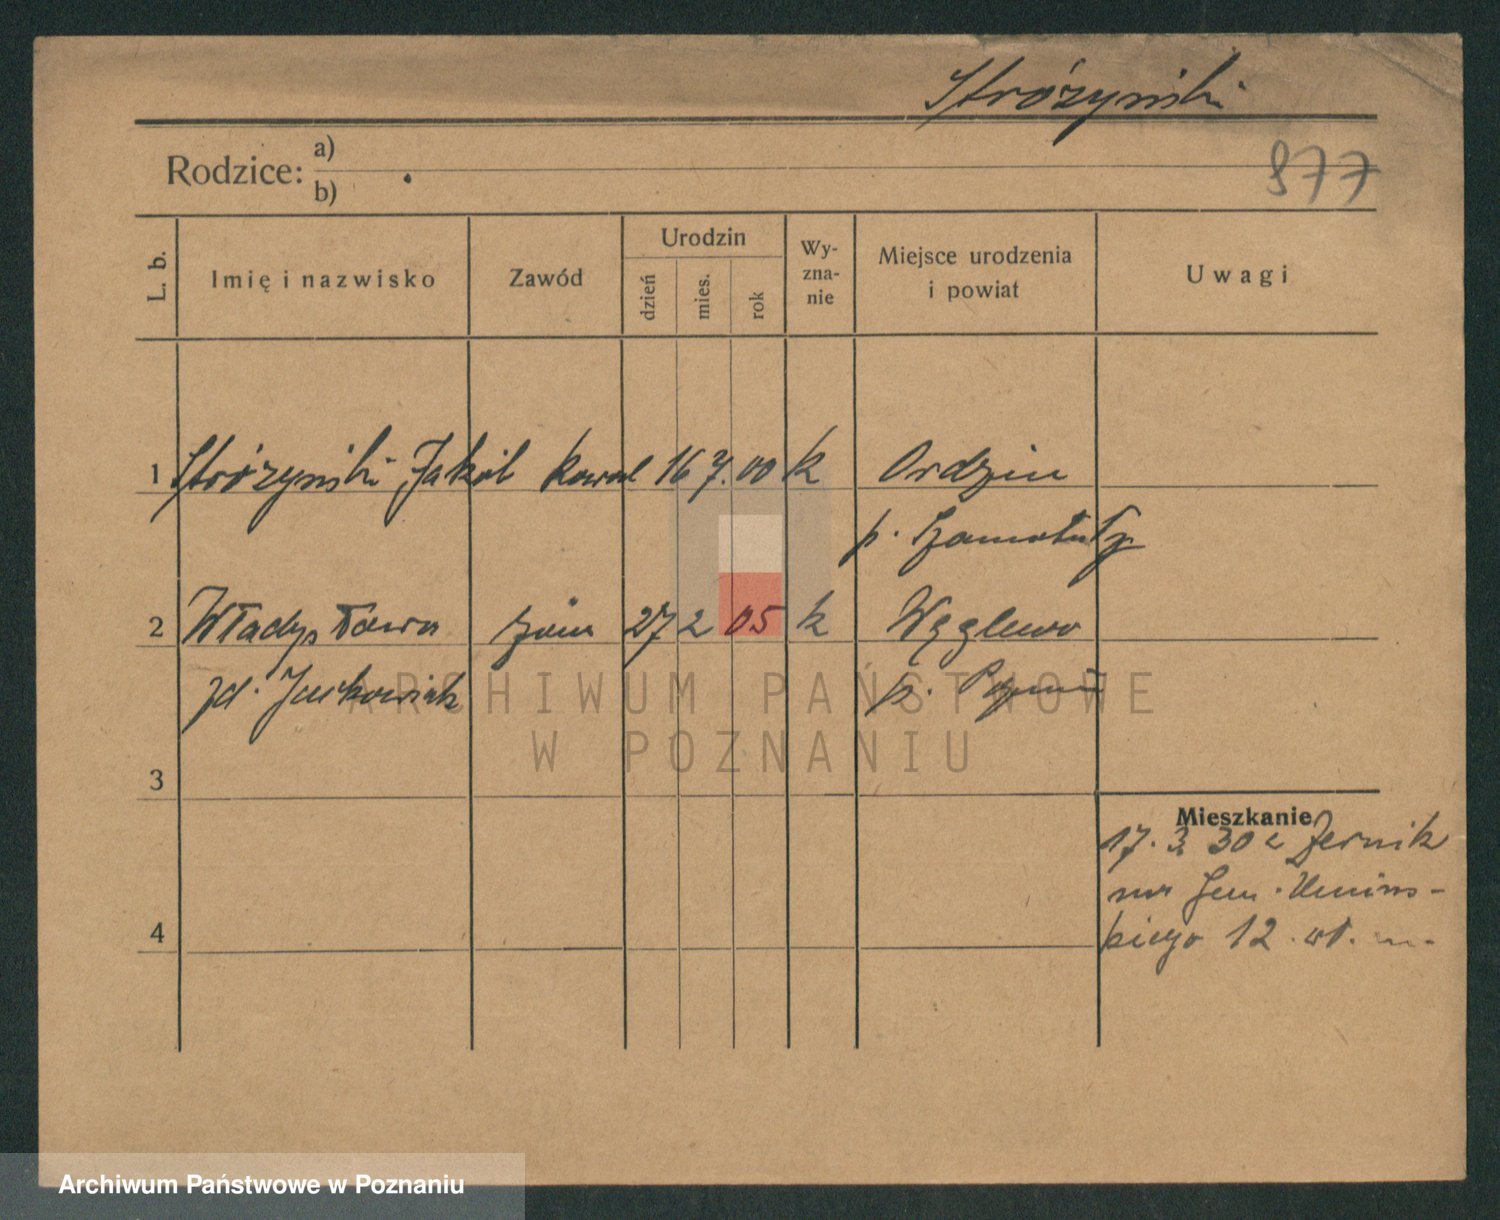 Stróżyński
Rodzice: a)
b)
877
L. b. Imię i nazwisko Zawód Urodzin dzień mies. rok Wy-zna-nie Miejsce urodzenia i powiat Uwagi
1 Stróżyński Jakób kowal 16 7. 00 k Ordzin
p. Szamotuły
2 Władysława żona 27 2 05 k Węglewo
zd. Jackowiak p. Poznań
ARCHIWUM PAŃSTWOWE
W POZNANIU
3
Mieszkanie
17. 3. 30 z Żernik
na Gen. Umińs-
4 kiego 12. wł. m.
Archiwum Państwowe w Poznaniu